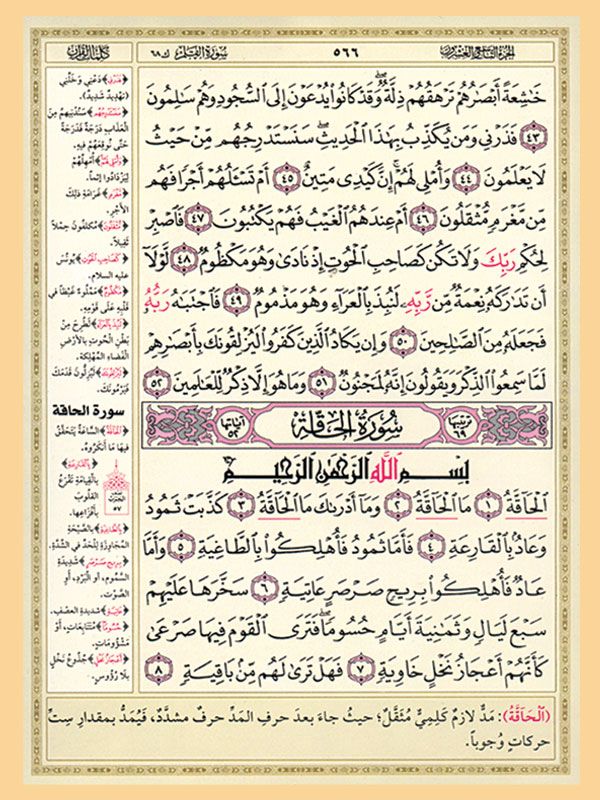 الجزء التاسع والعشرون
٥٦٦
سورة القلم ك ٦٨
كلمات القرآن
خَٰشِعَةً أَبۡصَٰرُهُمۡ تَرۡهَقُهُمۡ ذِلَّةٞۖ وَقَدۡ كَانُواْ يُدۡعَوۡنَ إِلَى ٱلسُّجُودِ وَهُمۡ سَٰلِمُونَ
٤٣ فَذَرۡنِي وَمَن يُكَذِّبُ بِهَٰذَا ٱلۡحَدِيثِۖ سَنَسۡتَدۡرِجُهُم مِّنۡ حَيۡثُ
لَا يَعۡلَمُونَ ٤٤ وَأُمۡلِي لَهُمۡۚ إِنَّ كَيۡدِي مَتِينٌ ٤٥ أَمۡ تَسۡـَٔلُهُمۡ أَجۡرٗا فَهُم
مِّن مَّغۡرَمٖ مُّثۡقَلُونَ ٤٦ أَمۡ عِندَهُمُ ٱلۡغَيۡبُ فَهُمۡ يَكۡتُبُونَ ٤٧ فَٱصۡبِرۡ
لِحُكۡمِ رَبِّكَ وَلَا تَكُن كَصَاحِبِ ٱلۡحُوتِ إِذۡ نَادَىٰ وَهُوَ مَكۡظُومٞ ٤٨ لَّوۡلَآ
أَن تَدَٰرَكَهُۥ نِعۡمَةٞ مِّن رَّبِّهِۦ لَنُبِذَ بِٱلۡعَرَآءِ وَهُوَ مَذۡمُومٞ ٤٩ فَٱجۡتَبَٰهُ رَبُّهُۥ
فَجَعَلَهُۥ مِنَ ٱلصَّٰلِحِينَ ٥٠ وَإِن يَكَادُ ٱلَّذِينَ كَفَرُواْ لَيُزۡلِقُونَكَ بِأَبۡصَٰرِهِمۡ
لَمَّا سَمِعُواْ ٱلذِّكۡرَ وَيَقُولُونَ إِنَّهُۥ لَمَجۡنُونٞ ٥١ وَمَا هُوَ إِلَّا ذِكۡرٞ لِّلۡعَٰلَمِينَ ٥٢
ترتيبها ٦٩
سُورَةُ الحَاقَّة
آياتها ٥٢
بِسۡمِ ٱللَّهِ ٱلرَّحۡمَٰنِ ٱلرَّحِيمِ
ٱلۡحَآقَّةُ ١ مَا ٱلۡحَآقَّةُ ٢ وَمَآ أَدۡرَىٰكَ مَا ٱلۡحَآقَّةُ ٣ كَذَّبَتۡ ثَمُودُ
وَعَادُۢ بِٱلۡقَارِعَةِ ٤ فَأَمَّا ثَمُودُ فَأُهۡلِكُواْ بِٱلطَّاغِيَةِ ٥ وَأَمَّا
عَادٞ فَأُهۡلِكُواْ بِرِيحٖ صَرۡصَرٍ عَاتِيَةٖ ٦ سَخَّرَهَا عَلَيۡهِمۡ
سَبۡعَ لَيَالٖ وَثَمَٰنِيَةَ أَيَّامٍ حُسُومٗاۖ فَتَرَى ٱلۡقَوۡمَ فِيهَا صَرۡعَىٰ
كَأَنَّهُمۡ أَعۡجَازُ نَخۡلٍ خَاوِيَةٖ ٧ فَهَلۡ تَرَىٰ لَهُم مِّنۢ بَاقِيَةٖ ٨
﴿فَذَرْنِي﴾ دَعْنِي وَخَلِّنِي
(تَهْدِيدٌ شَدِيدٌ).
﴿سَنَسْتَدْرِجُهُم﴾ سَنُدْنِيهِمْ مِنَ
الْعَذَابِ دَرَجَةً فَدَرَجَةً
حَتَّى نُوقِعَهُمْ فِيهِ.
﴿وَأُمْلِي لَهُمْ﴾ أُمْهِلُهُمْ
لِيَزْدَادُوا إِثْمًا.
﴿مَغْرَمٍ﴾ غَرَامَةِ ذَلِكَ
الأَجْرِ.
﴿مُثْقَلُونَ﴾ مُكَلَّفُونَ حِمْلًا
ثَقِيلًا.
﴿كَصَاحِبِ الْحُوتِ﴾ يُونُسَ
عليه السلام.
﴿مَكْظُومٌ﴾ مَمْلُوءٌ غَيْظًا فِي
قَلْبِهِ عَلَى قَوْمِهِ.
﴿لَنُبِذَ بِالْعَرَاءِ﴾ لَطُرِحَ مِنْ
بَطْنِ الْحُوتِ بِالأَرْضِ
الْفَضَاءِ الْمُهْلِكَةِ.
﴿لَيُزْلِقُونَكَ﴾ لَيُزِلُّونَ قَدَمَكَ
فَيَرْمُونَكَ.
سورة الحاقة
﴿الْحَاقَّةُ﴾ السَّاعَةُ يَتَحَقَّقُ
فِيهَا مَا أَنْكَرُوهُ.
﴿بِالْقَارِعَةِ﴾
بِالْقِيَامَةِ تَقْرَعُ
القلوبَ
بِأَفْزَاعِهَا.
الحزب
٥٧
﴿بِالطَّاغِيَةِ﴾ بِالصَّيْحَةِ
الْمُجَاوِزَةِ لِلْحَدِّ فِي الشِّدَّةِ.
﴿بِرِيحٍ صَرْصَرٍ﴾ شَدِيدَةِ
السَّمُومِ، أو الْبَرْدِ، أو
الصَّوْتِ.
﴿عَاتِيَةٍ﴾ شديدةِ العصفِ.
﴿حُسُومًا﴾ مُتَتَابِعَاتٍ، أَوْ
مَشْؤُومَاتٍ.
﴿أَعْجَازُ نَخْلٍ﴾ جُذُوعُ نَخْلٍ
بِلَا رُؤُوسٍ.
(اَلْحَآقَّةُ): مَدٌّ لازمٌ كَلِمِيٌّ مُثَقَّلٌ؛ حيثُ جاءَ بعدَ حرفِ المَدِّ حرفٌ مشدَّدٌ، فَيُمَدُّ بمقدارِ سِتِّ
حركاتٍ وُجوباً.